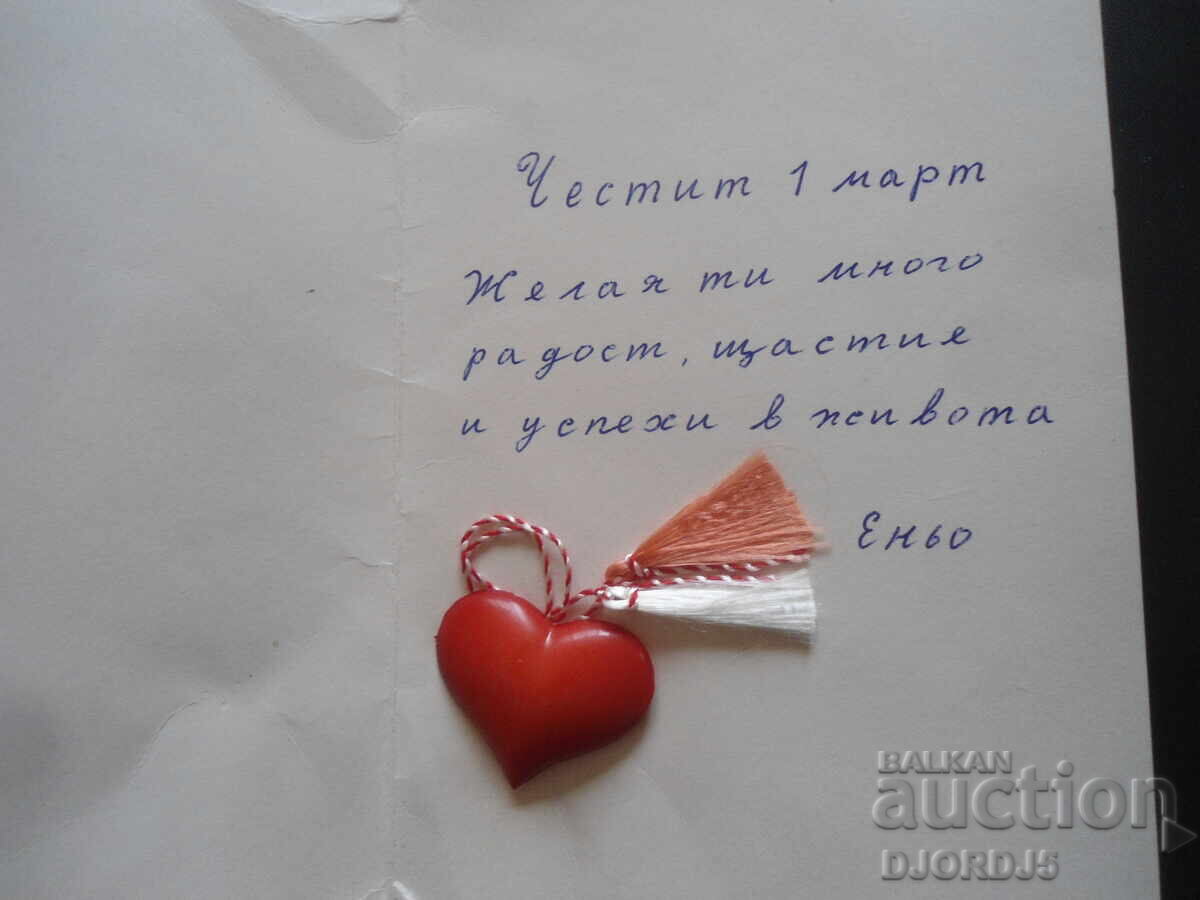 Честит 1 март
Желая ти много
радост, щастие
и успехи в живота
Еньо
BALKAN
auction
DJORDJ5